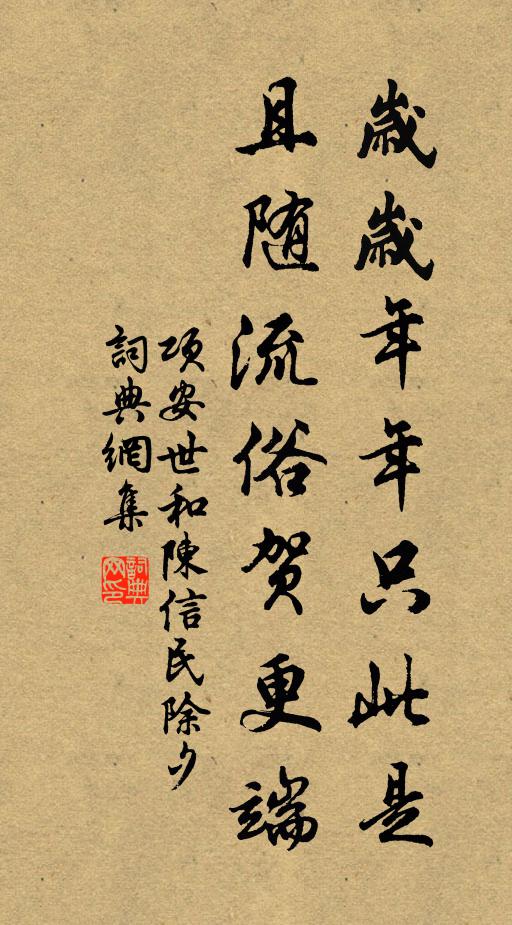 歲歲年年只此是
且随流俗賀更端
項安世和陳信民除夕
詞典網集
詞典網印